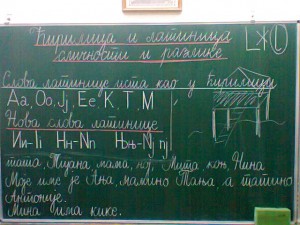 Ћирилица и латиница
сличности и разлике
Слова латинице иста као у ћирилици
Aa, Oo, Jj, Ee, K, T, M
Нова слова латинице
Ии-Ii Нн-Nn Њњ-Nj nj
тата, Тијана, мама, ној, Мита, коњ, Нина
Моје име је Ања, мамино Тања а татино
Антоније.
Мина има кике.